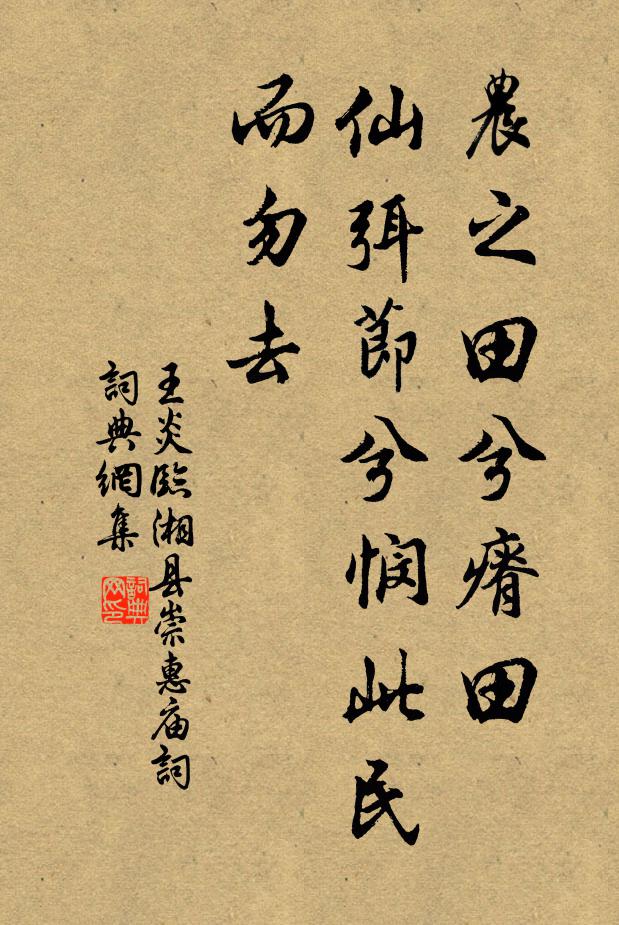 農之田兮瘠田
仙弭節兮憫此民
而勿去
王炎臨湘县崇惠庙詞
詞典網集
詞典
网印